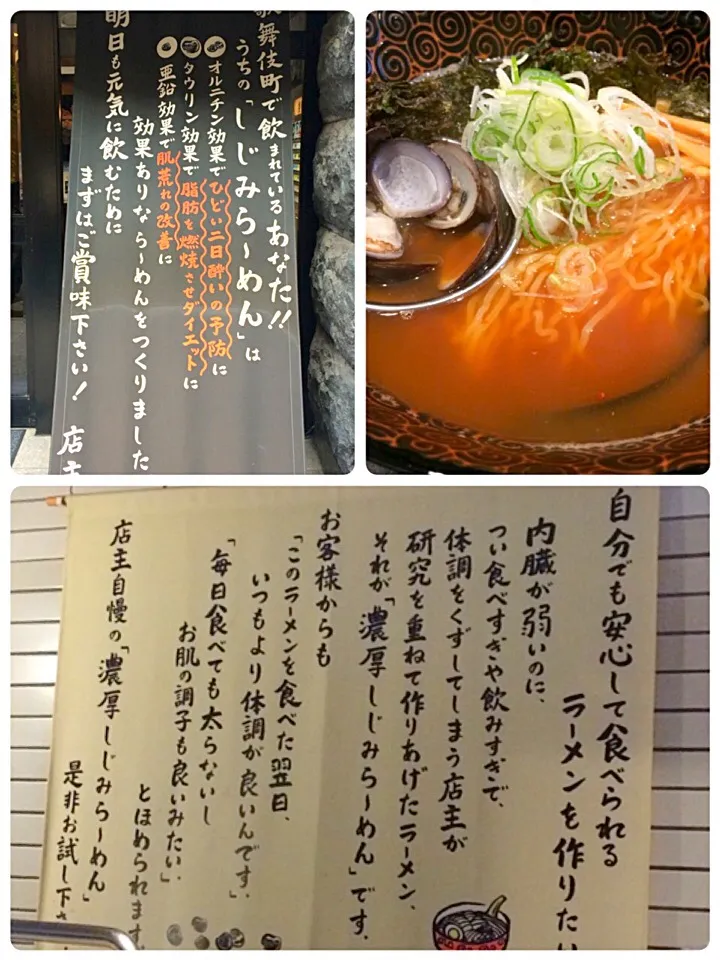 歌舞伎町で飲まれているあなた!!
うちの「しじみら〜めん」は
オルニチン効果でひどい二日酔いの予防に
タウリン効果で脂肪を燃焼させダイエットに
亜鉛効果で肌荒れの改善に
効果ありなら〜めんをつくりました
明日も元気に飲むために
まずはご賞味下さい!
店主
自分でも安心して食べられる
ラーメンを作りたい
内臓が弱いのに、
つい食べすぎや飲みすぎで、
体調をくずしてしまう店主が
研究を重ねて作りあげたラーメン、
それが「濃厚しじみら〜めん」です。
お客様からも
「このラーメンを食べた翌日、
いつもより体調が良いんです」、
「毎日食べても太らないし
お肌の調子も良いみたい」
とほめられます。
店主自慢の「濃厚しじみら〜めん」
是非お試し下さ